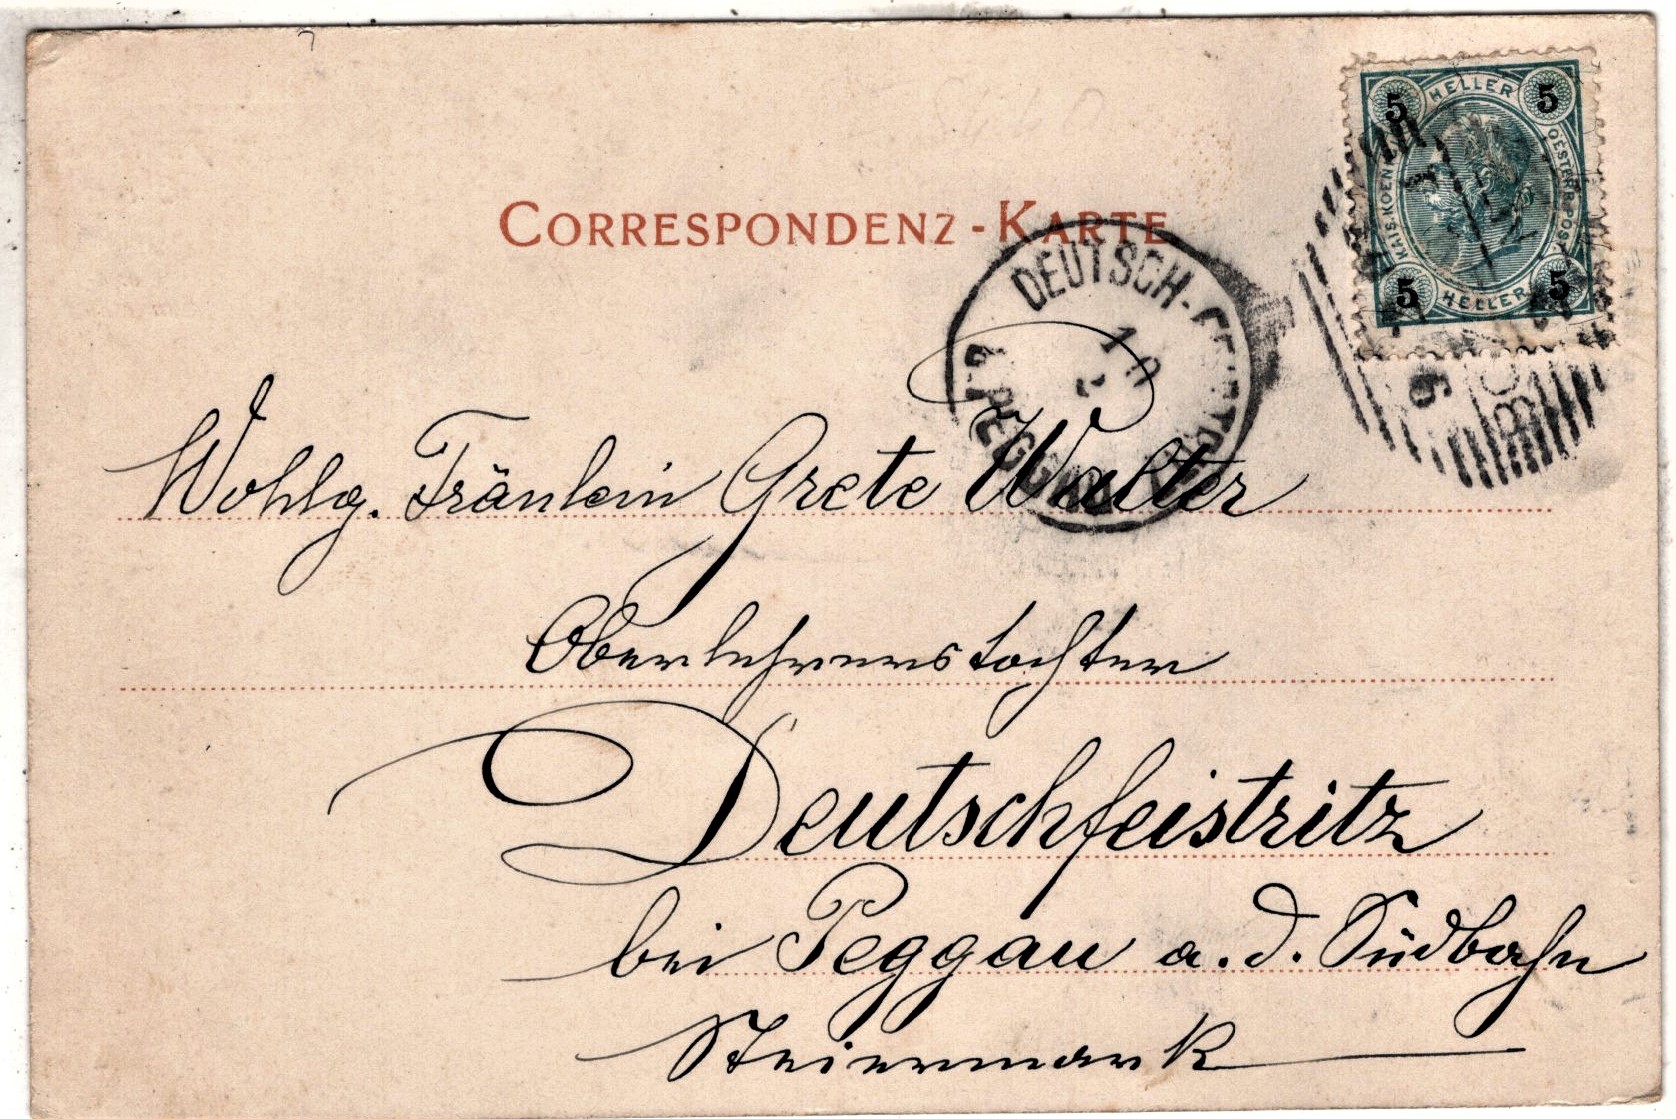 CORRESPONDENZ-KARTE
5 HELLER 5
KAIS. KOEN. OESTERR. POST.
5 HELLER 5
DEUTSCH-
PEGGAU
Wohlg. Fräulein Grete Walter
Oberlehrerstochter
Deutschfeistritz
bei Peggau a. d. Südbahn
Steiermark